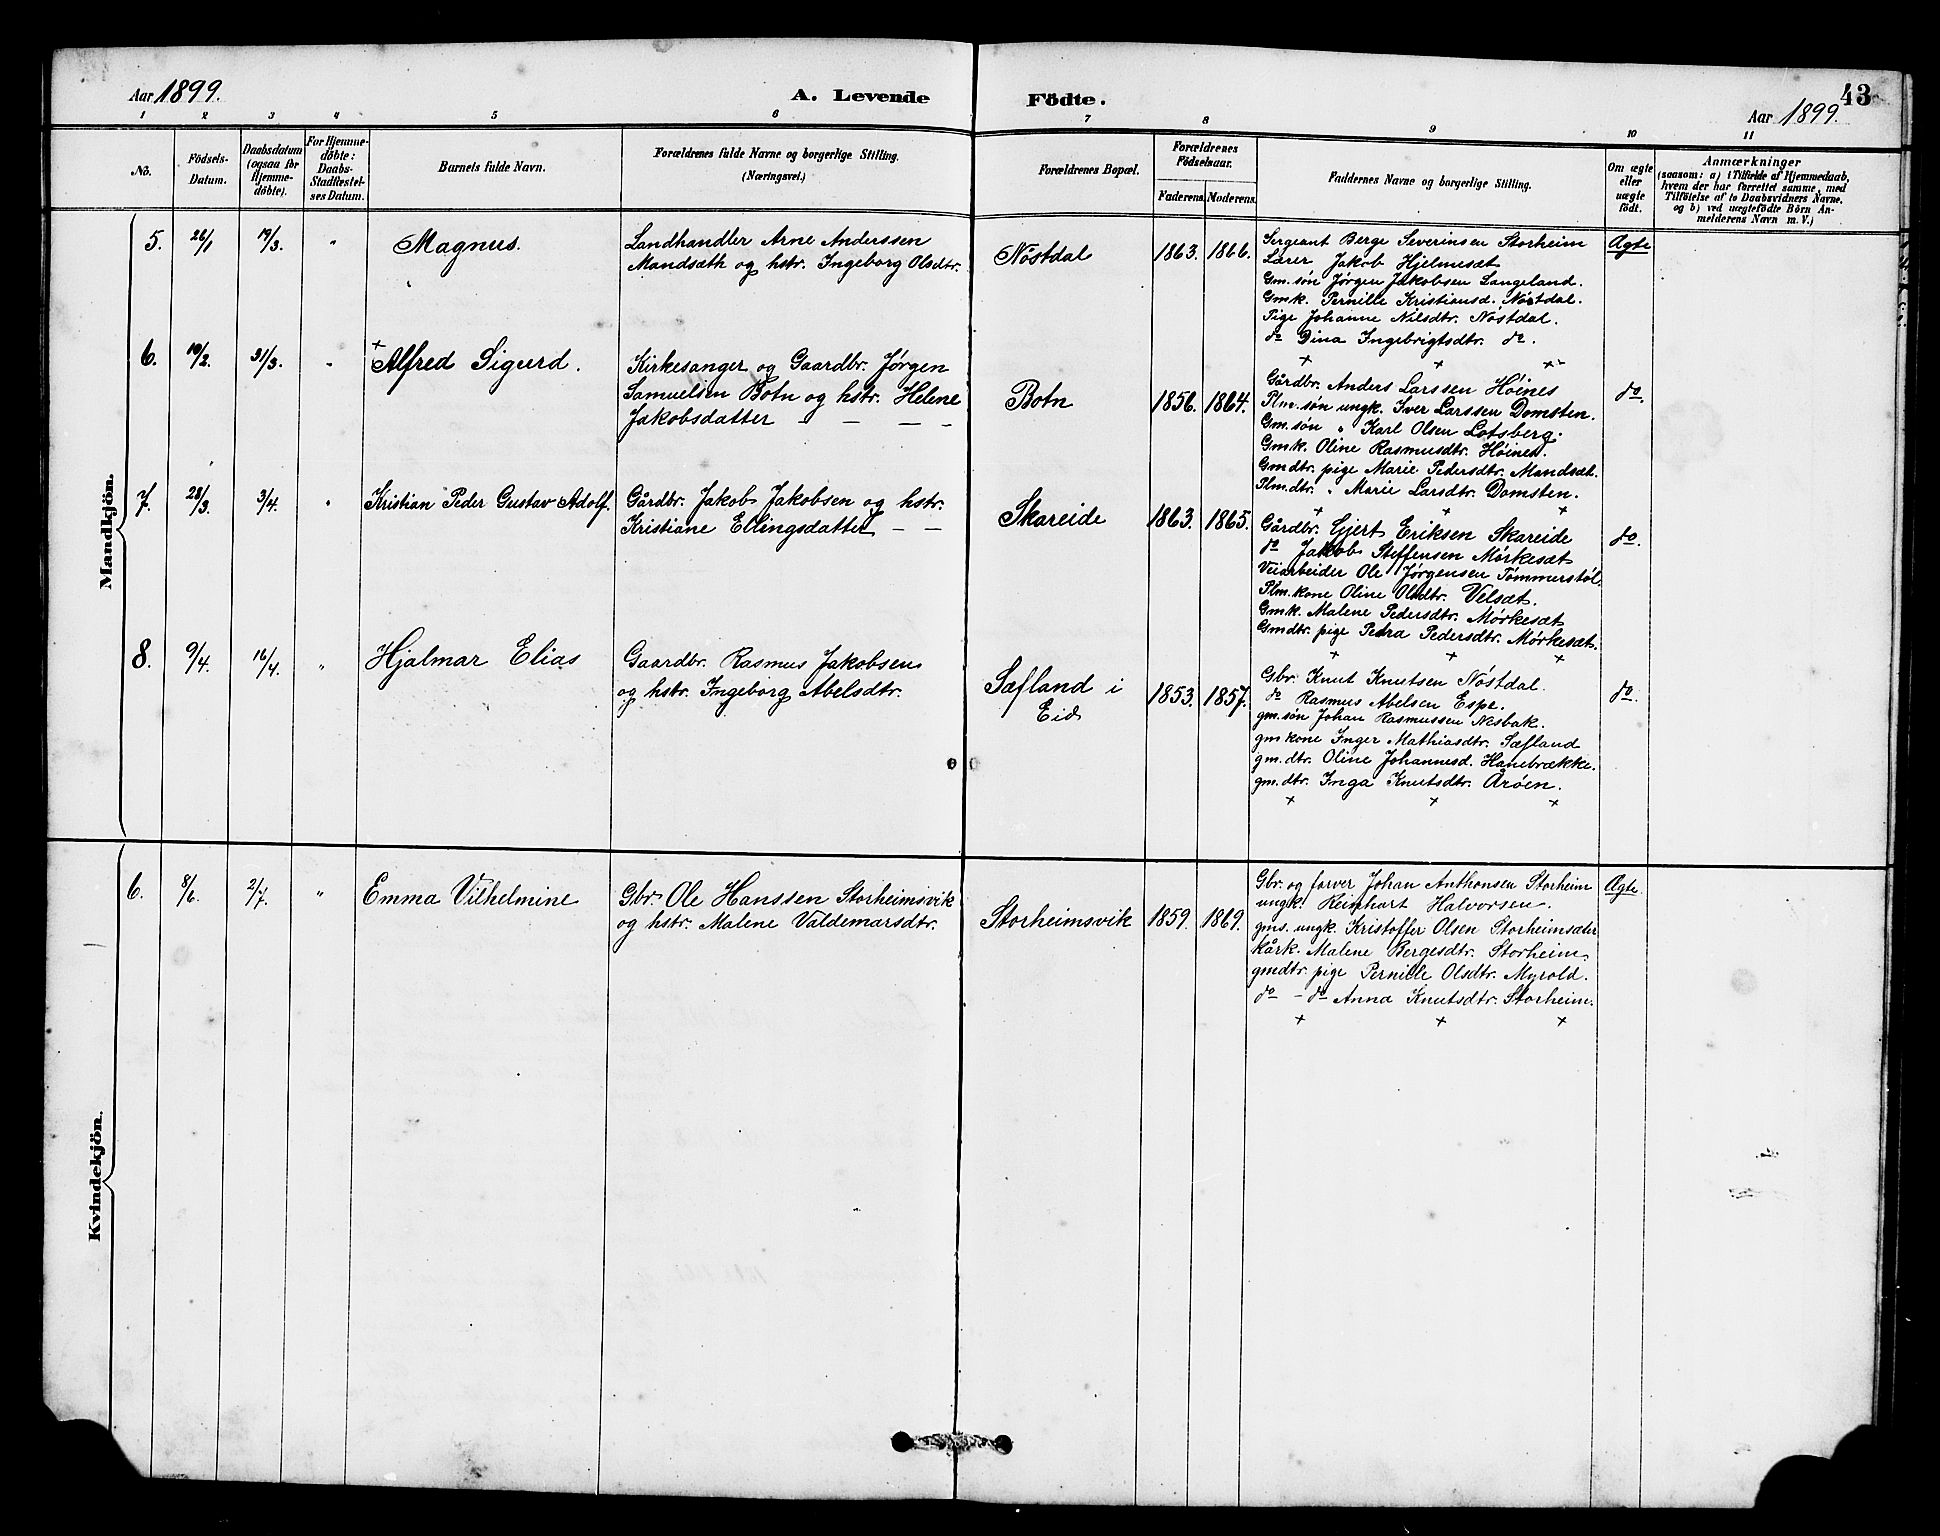 Aar 1899.
A. Levende
Födte.
43
Aar 1899.
1 2 3 4 5 6 7 8 9 10 11
No.
Födsels-
Datum.
Daabsdatum
(ogsaa för
Hjemme-
döbte).
For Hjemme-
döbte:
Daabs-
Stadfæstel-
ses Datum.
Barnets fulde Navn.
Forældrenes fulde Navne og borgerlige Stilling.
(Næringsvei.)
Forældrenes Bopæl.
Forældrenes
Födselsaar.
Faderens. Moderens.
Faddernes Navne og borgerlige Stilling.
Om ægte
eller
uægte
födt.
Anmærkninger
(saasom: a) i Tilfælde af Hjemmedaab,
hvem der har forrettet samme, med
Tilföielse af to Daabsvidners Navne.
og b) ved uægtefödte Börn An-
melderens Navn m. V.)
Mandkjön.
5. 26/1 19/3. " Magnus.
Landhandler Arne Anderssen
Mandsæth og hstr. Ingeborg Olsdtr.
Nöstdal 1863. 1866.
Sergeant Berge Severinsen Storheim
Lærer Jakob Hjelmesæt
Gm. søn Jørgen Jakobsen Langeland.
Gmk. Pernille Kristiansd. Nöstdal.
Pige Johanne Nilsdtr. Nöstdal.
do Dina Ingebrigtsdtr. do.
+ + +
Ægte
6. 19/2. 31/3. " + Alfred Sigurd.
Kirkesanger og Gaardbr. Jørgen
Samuelsen Botn og hstr. Helene
Jakobsdatter — — — —
Botn 1856. 1864.
Gårdbr. Anders Larssen Höines
Plm. søn ungk. Iver Larssen Domsten.
Gm. søn " Karl Olsen Lotsberg.
Gmk. Oline Rasmusdtr. Höines.
Gmdtr. pige Marie Pedersdtr. Mandsæt.
Plm. dtr. " Marie Larsdtr. Domsten.
+ + +
do.
7. 28/3. 3/4. " Kristian Peder Gustav Adolf.
Gårdbr. Jakob Jakobsen og hstr.
Kristiane Ellingsdatter — —
Skareide 1863. 1865.
Gårdbr. Gjert Eriksen Skareide
do Jakob Steffensen Mörkesæt
Veiarbeider Ole Jørgensen Tömmerstöl.
Plm. kone Oline Olsdtr. Velsæt.
Gmk. Malene Pedersdtr. Mörkesæt
Gmdtr. pige Pedra Pedersdtr. Mörkesæt.
+ + +
do.
8. 9/4. 16/4. " Hjalmar Elias
Gaardbr. Rasmus Jakobsen
og hstr. Ingeborg Abelsdtr.
Sæfland i
Eid
1853. 1857.
Gbr. Knut Knutsen Nöstdal.
do Rasmus Abelsen Espe.
gm. søn Johan Rasmussen Nesbak.
gm kone Inger Mathiasdtr. Sæfland
gm. dtr. Oline Johannesd. Hanebrække.
gm. dtr. Inga Knutsdtr. Åröen.
+ + +
do.
Kvindekjön.
6. 8/6. 2/7. " Emma Vilhelmine
Gbr. Ole Hanssen Storheimsvik
og hstr. Malene Valdemarsdtr.
Storheimsvik 1859. 1869.
Gbr. og farver Johan Anthonsen Storheim
ungk. Reinhart Halvorsen.
gms. ungk. Kristoffer Olsen Storheimsæter
Kårk. Malene Bergesdtr. Storheim.
gmdtr. pige Pernille Olsdtr. Myrold.
do - do Anna Knutsdtr. Storheim.
+ + +
Ægte.